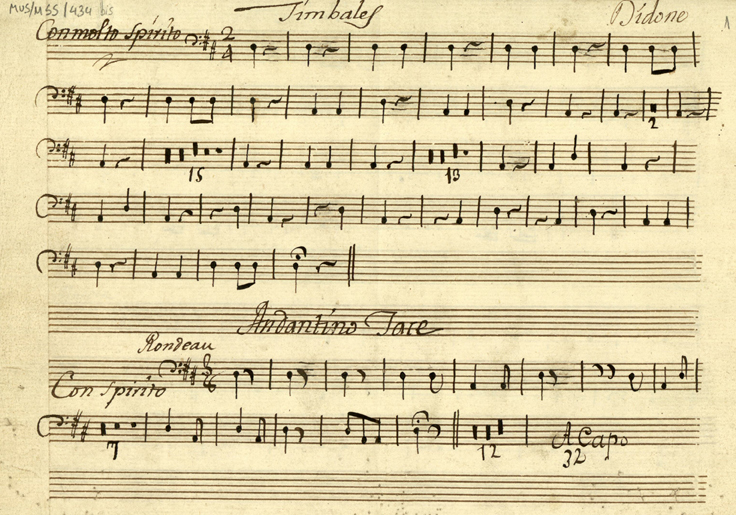 MUS/MSS/434 bis
Timbales
Didone
1
Con molto spirito
2
4
2
15
13
Andantino Tace
Rondeau
Con spirito
7
12
A Capo
32